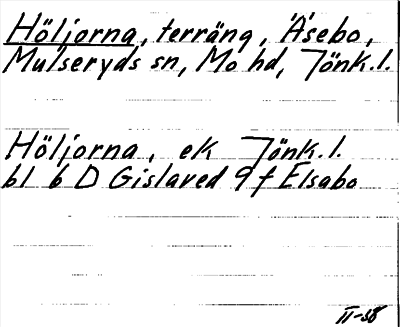 Höljorna, terräng, Åsebo,
Mulseryds sn, Mo hd, Jönk.l.
Höljorna, ek Jönk.l.
bl 6 D Gislaved 9 f Elsabo
II-38